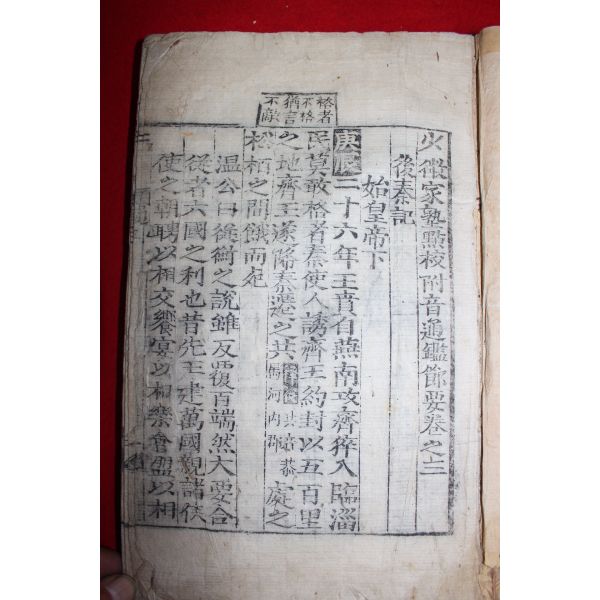 格者
不格
猶言
不敵
少微家塾點校附音通鑑節要卷之三
後秦記
始皇帝下
庚辰二十六年王賁自燕南攻齊猝入臨淄
民莫敢格者秦使人誘齊王約封以五百里
之地齊王遂降秦遷之共共音恭河內郡處之
松栢之間餓而死
溫公曰從衡之說雖反覆百端然大要合
從者六國之利也昔先王建萬國親諸侯
使之朝聘以相交饗宴以相樂會盟以相